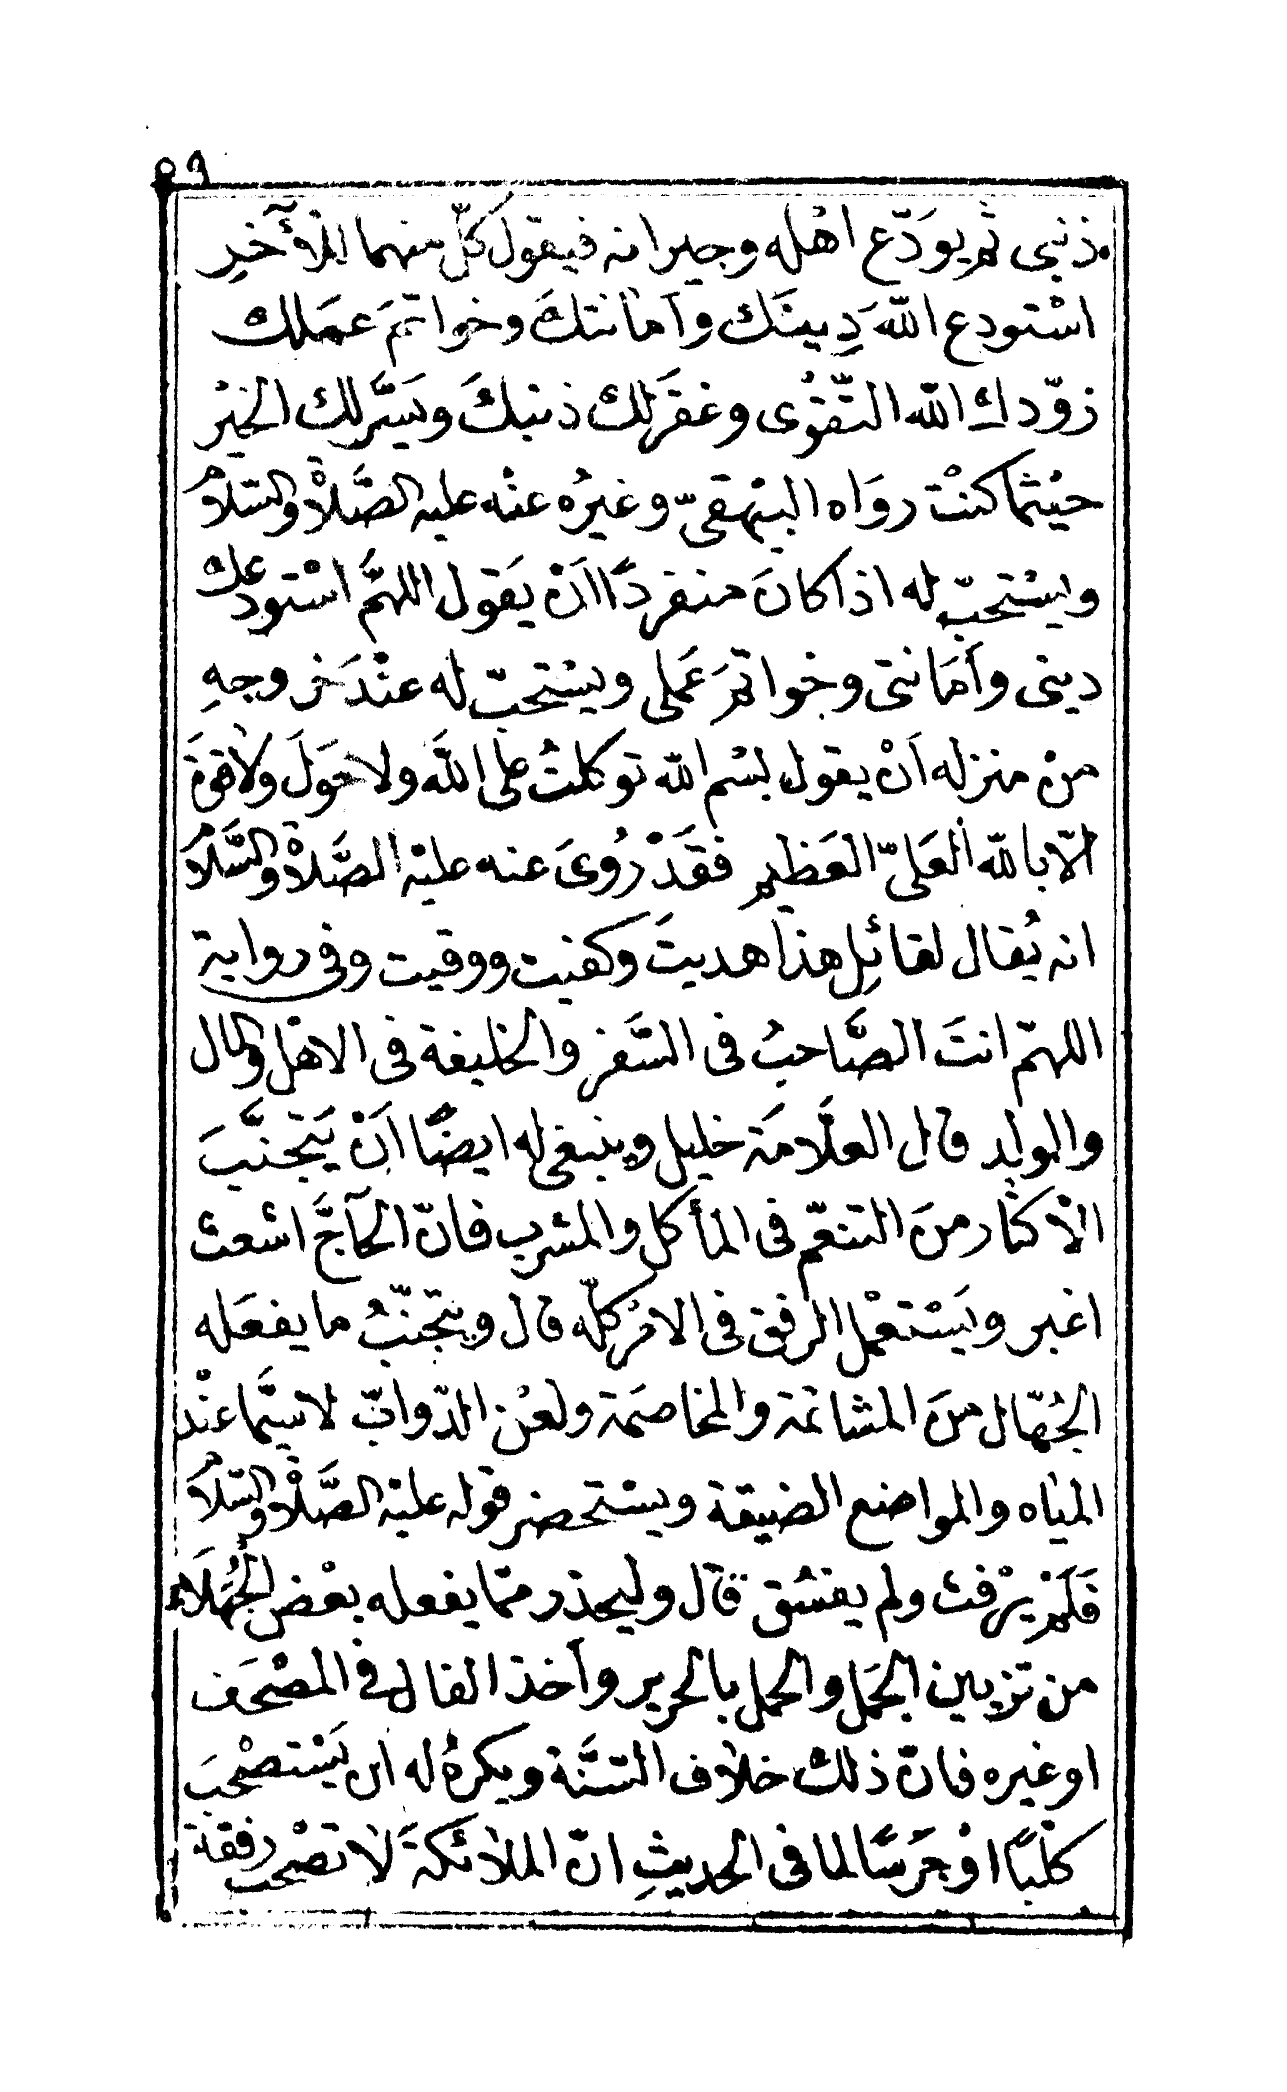 ٥٩
ذنبى ثم يودّع اهْله وجيرانه فيقول كلّ منهما للآخرِ
اسْتودع اللّهَ دِينَك وامانتكَ وخواتمَ عمَلك
زوّدك اللّه التّقوْى وغفَرلك ذنبكَ ويَسَّرلك الخيْر
حيْثما كنْت روَاه البيْهقىّ وغيرُه عنْه عليه الصَّلاةْ والسّلامُ
ويسْتحبّ له اذا كانَ منفردًا اَنْ يَقول اللهمَّ اسْتودعك
دينى وأمَانتى وخواتمَ عَملى ويسْتحبّ له عنْدَ خروجهِ
منْ منزله اَنْ يقول بسْم اللّه توكلتُ على اللّهَ ولا حَولَ ولا قوةَ
الّا باللّه العَلىّ العَظيم فقَدْ رُوىَ عنه عليْه الصَّلاةْ والسَّلامُ
انه يُقال لقائِل هذا هديتَ وكفيت ووقيت وفى رواية
اللهمّ انتَ الصَّاحبُ فى السَّفر والخليفة فى الاهْل والمال
والولد قال العلَّامَة خليل وينبغى له ايضًا اَنْ يَتجنَّبَ
الْأكثار منَ التنعّم فى المأكل والمشرب فانّ الحآجَّ اشعث
اغبر ويَسْتعْمل الرفق فى الامْر كلّه قال ويتجنّبُ ما يفعَله
الجُهّال منَ المشاتمة والمخاصَمة ولعْن الدّوابّ لاسيَّما عنْد
المياه والمواضع الضيقة ويسْتحضر قوله عليْه الصَّلاةْ والسّلامُ
فَلَمْ يرْفث ولم يفسُق قال وليحذر ممّا يفعله بعْض الجُهَلاء
من تزيين الجَمل والحمل بالحرير وأخذ الفال فى المصْحَف
او غيره فانّ ذلك خلاف السَّنة ويكرهُ له ان يَسْتصْحبَ
كلْبًا اوْ جَرَسًا لما فى الحديثِ انّ الملائكةَ لا تصْحب رفقة